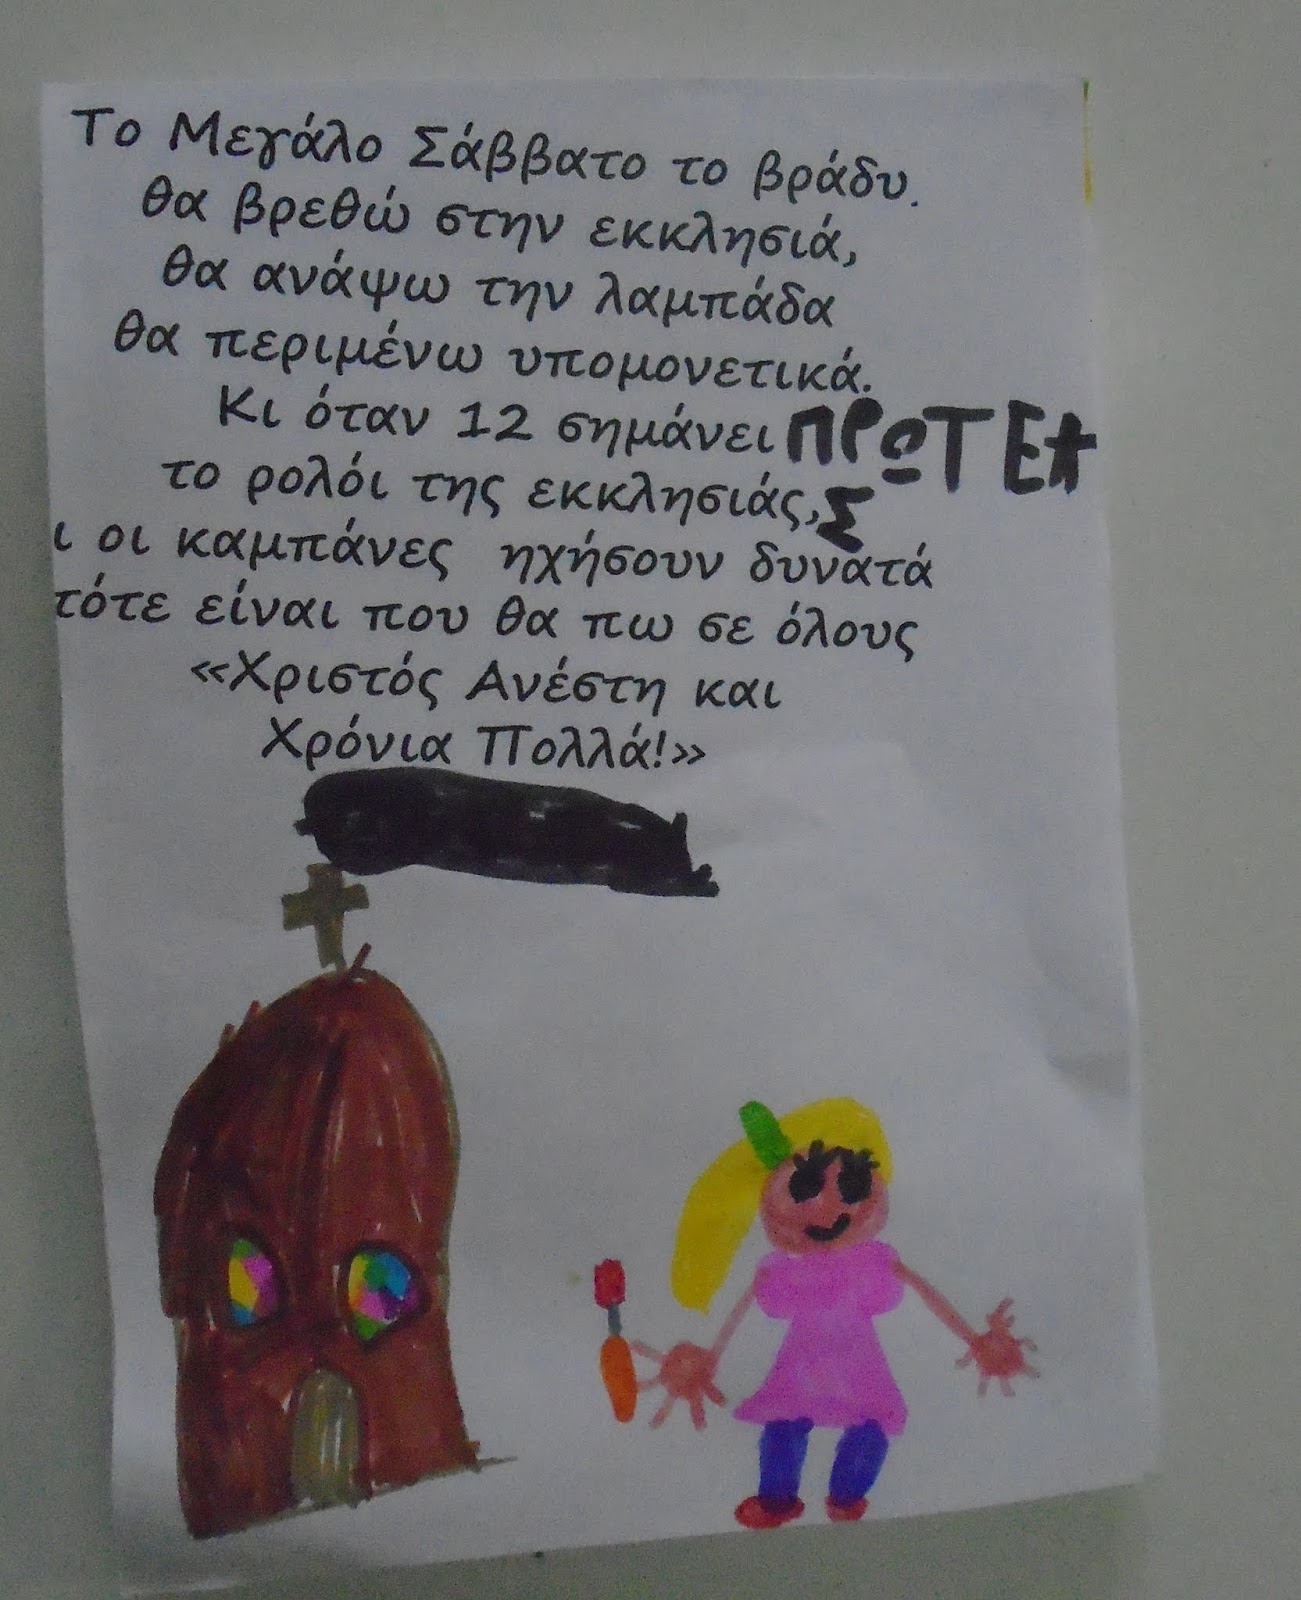 Το Μεγάλο Σάββατο το βράδυ.
θα βρεθώ στην εκκλησιά,
θα ανάψω την λαμπάδα
θα περιμένω υπομονετικά.
Κι όταν 12 σημάνει ΠΡΩΤΕΑ
το ρολόι της εκκλησιάς, Σ
ι οι καμπάνες ηχήσουν δυνατά
τότε είναι που θα πω σε όλους
«Χριστός Ανέστη και
Χρόνια Πολλά!»